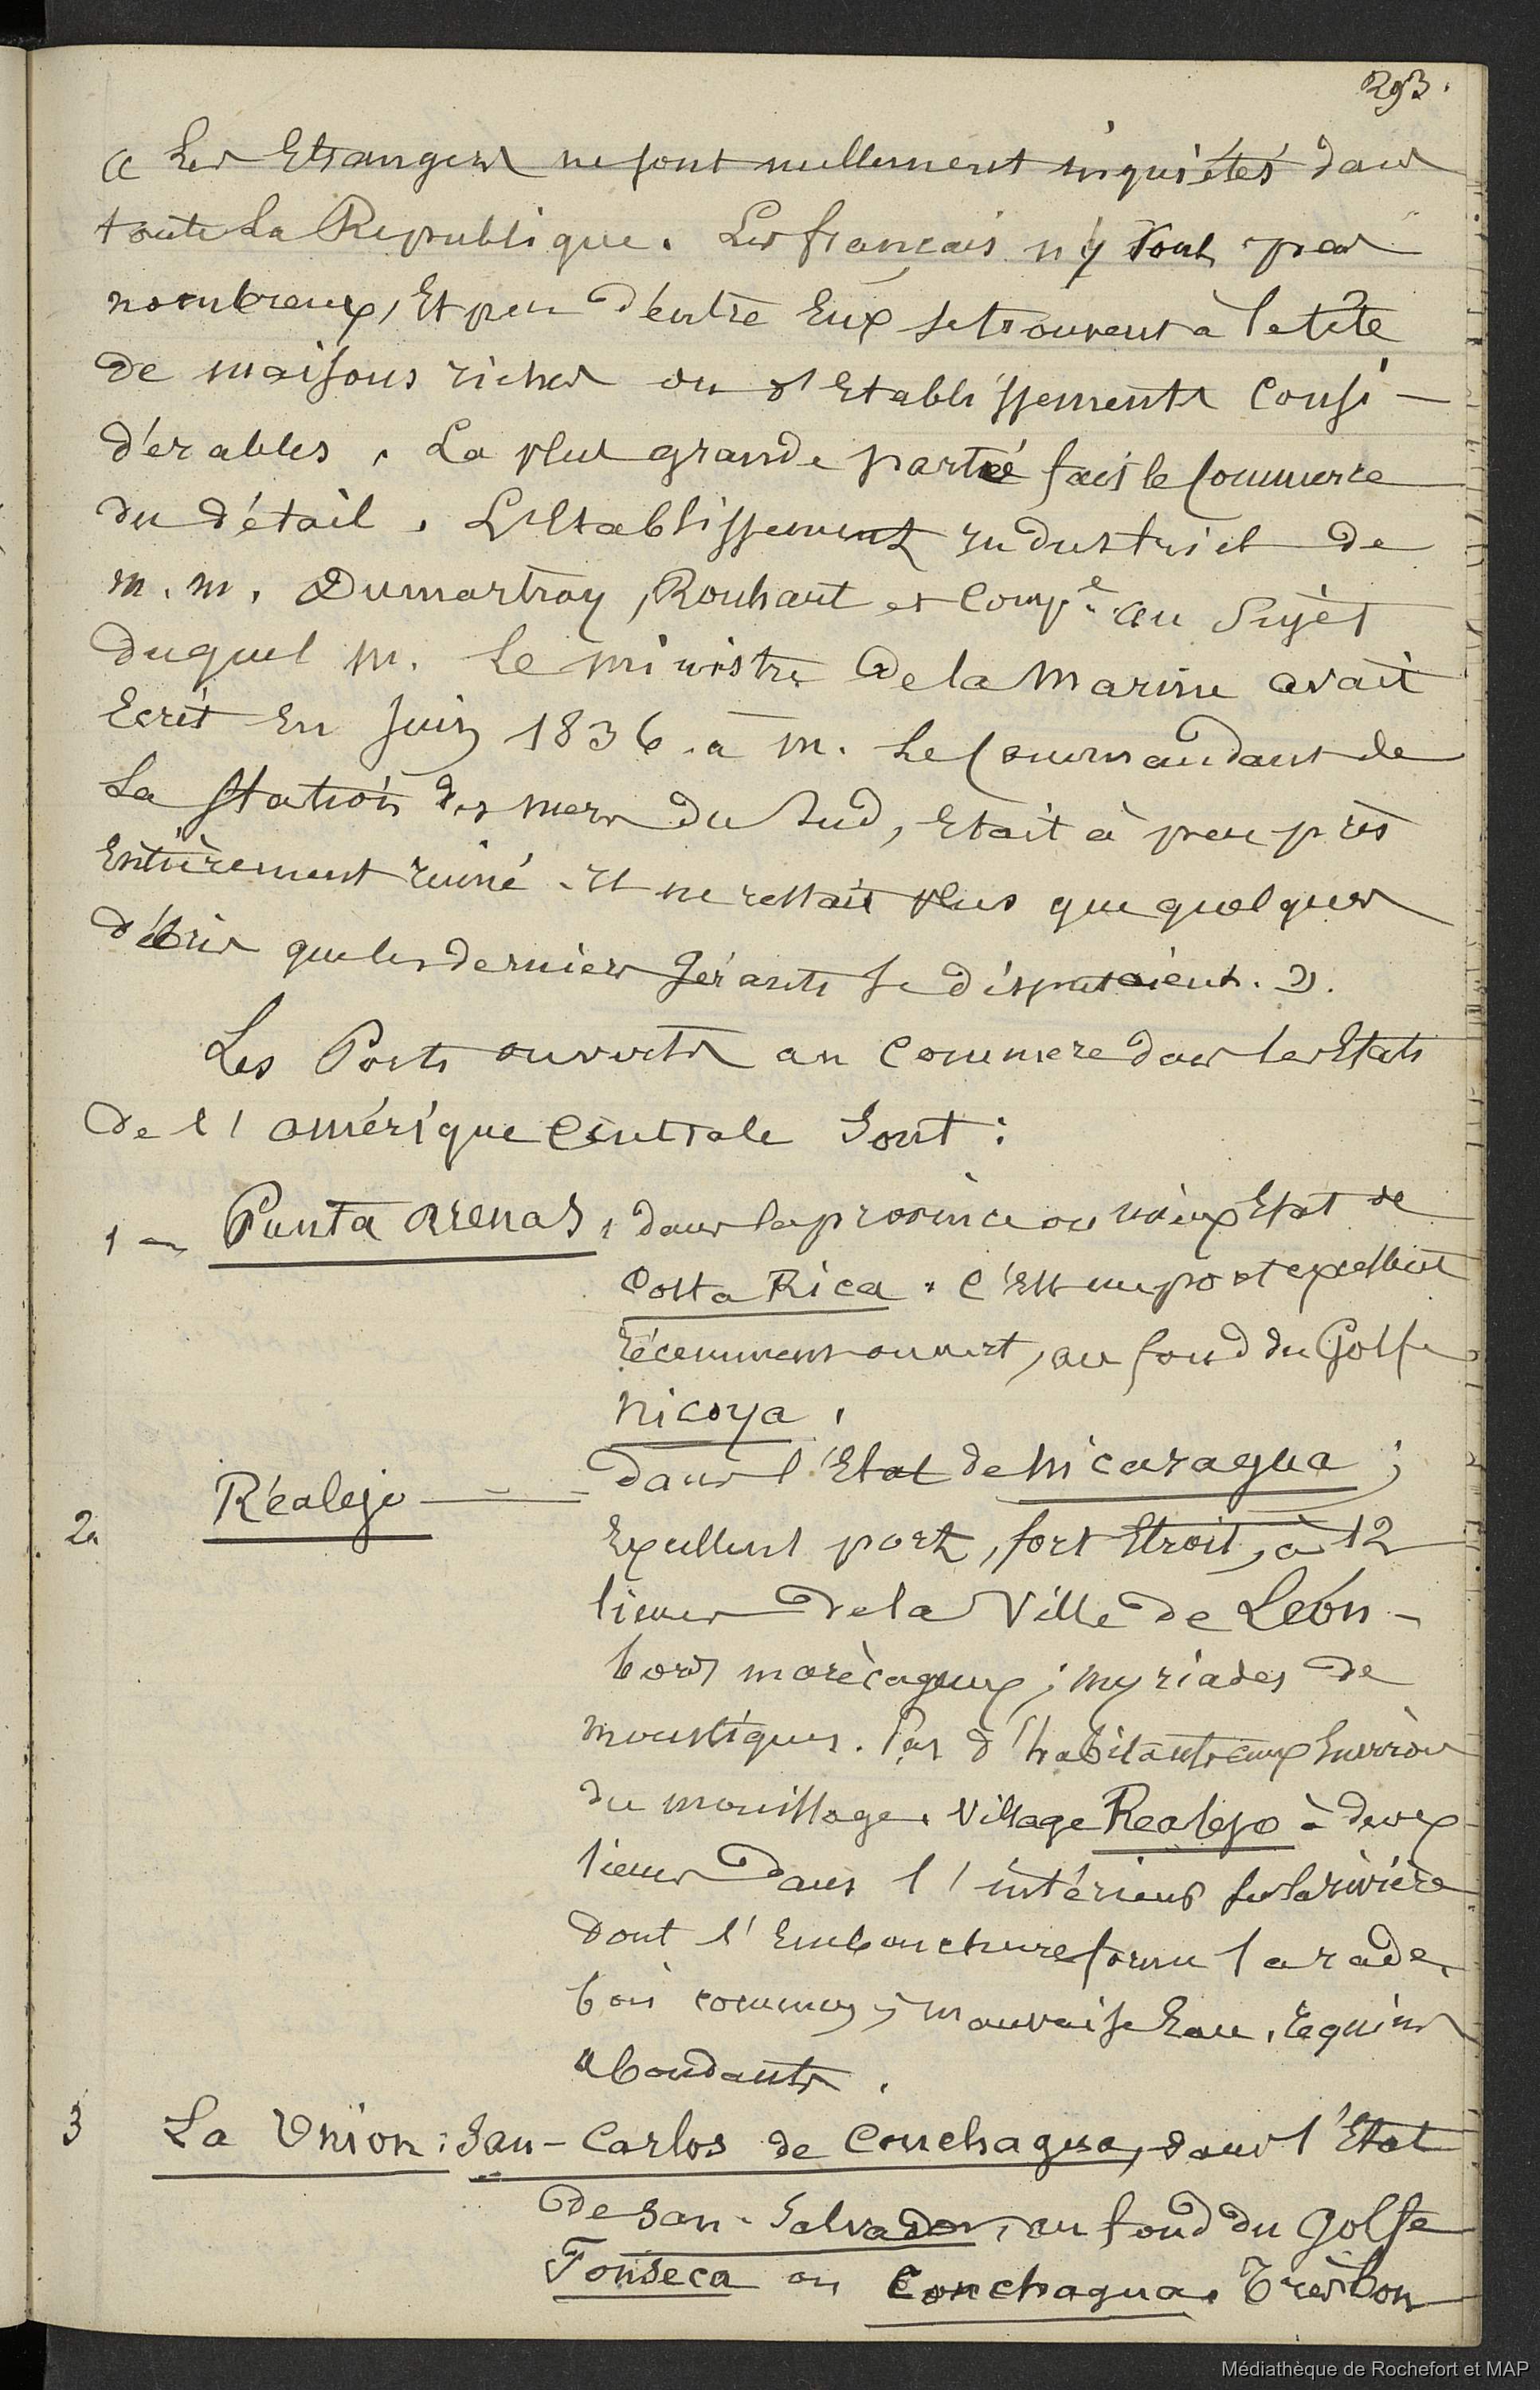 293.
« Les Etrangers ne sont nullement inquiétés dans
toute la Republique. Les français n'y sont pas
nombreux, Et peu d'entre Eux se trouvent à la tête
de maisons riches ou d'Etablissements consi-
dérables. La plus grande partie fait le Commerce
du détail. L'Etablissement industriel de
m. m. Dumartray, Rouhaut et Compe. au Sujet
duquel m. le ministre de la marine avait
Ecrit En Juin 1836. à m. le Commandant de
la Station des mers du Sud, Etait à peu près
Entièrement ruiné. Il ne restait plus que quelques
débris que les derniers gérants se disputaient. ».
Les Ports ouverts au commerce dans les Etats
de l'amérique Centrale sont :
1 — Punta Arenas, dans la province ou vieux Etat de
Costa Rica. C'Est un port excellent
récemment ouvert, au fond du Golfe
Nicoya.
2. Réalejo — dans l'Etat de Nicaragua ;
Excellent port, fort Etroit, à 12
lieues de la Ville de León -
bords marécageux ; myriades de
moustiques. Pas d'habitants aux Environs
du mouillage. Village Realejo à deux
lieues dans l'intérieur sur la rivière
dont l'Embouchure forme la rade.
bois commun ; mauvaise Eau. requins
abondants.
3 La Union : San-Carlos de Conchagua, dans l'Etat
de San-Salvador, au fond du Golfe
Fonseca ou Conchagua. Très bon
Médiathèque de Rochefort et MAP